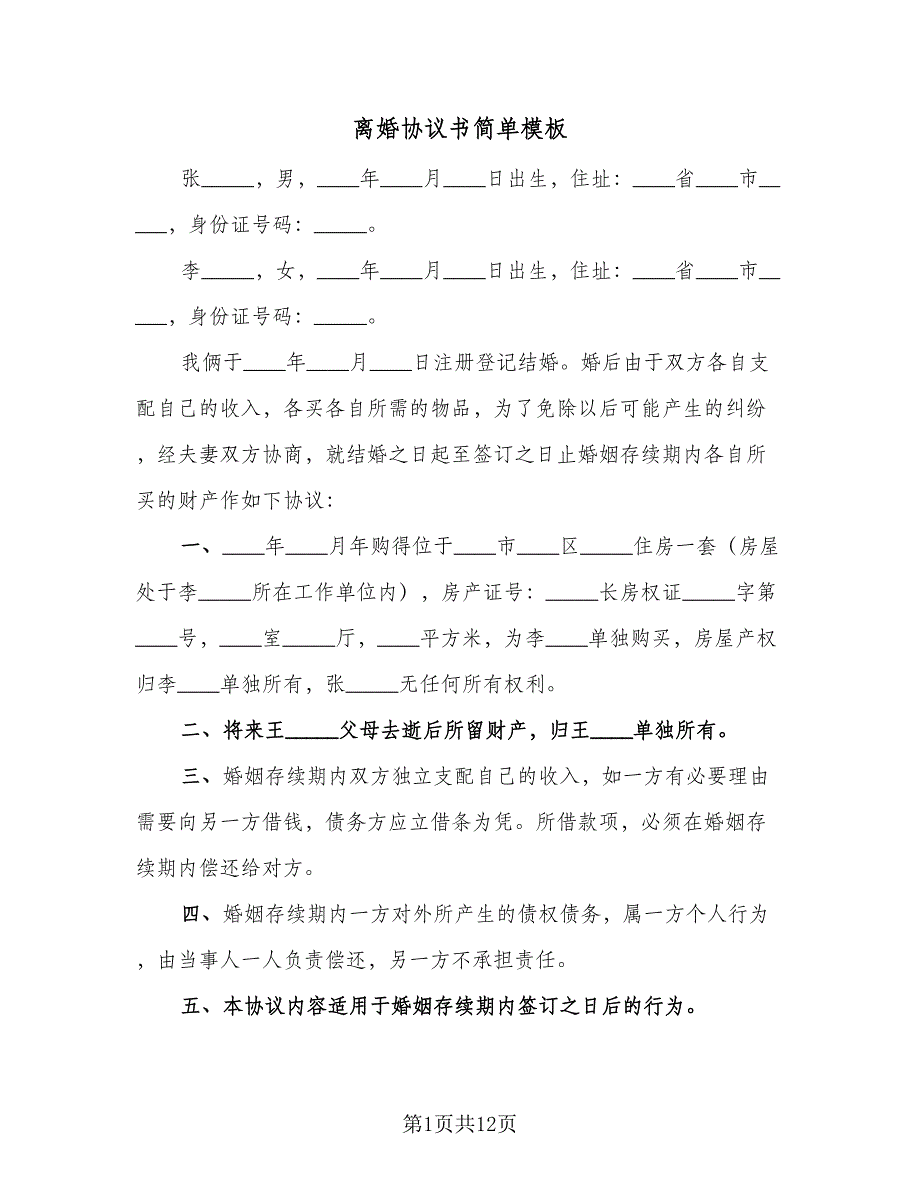 离婚协议书简单模板
张_____，男，____年____月____日出生，住址：____省____市__
___，身份证号码：_____。
李_____，女，____年____月____日出生，住址：____省____市__
___，身份证号码：_____。
我俩于____年____月____日注册登记结婚。婚后由于双方各自支
配自己的收入，各买各自所需的物品，为了免除以后可能产生的纠纷
，经夫妻双方协商，就结婚之日起至签订之日止婚姻存续期内各自所
买的财产作如下协议：
一、____年____月年购得位于____市____区_____住房一套（房屋
处于李_____所在工作单位内），房产证号：_____长房权证_____字第
____号，____室_____厅，____平方米，为李____单独购买，房屋产权
归李____单独所有，张_____无任何所有权利。
二、将来王_____父母去逝后所留财产，归王____单独所有。
三、婚姻存续期内双方独立支配自己的收入，如一方有必要理由
需要向另一方借钱，债务方应立借条为凭。所借款项，必须在婚姻存
续期内偿还给对方。
四、婚姻存续期内一方对外所产生的债权债务，属一方个人行为
，由当事人一人负责偿还，另一方不承担责任。
五、本协议内容适用于婚姻存续期内签订之日后的行为。
第1页共12页